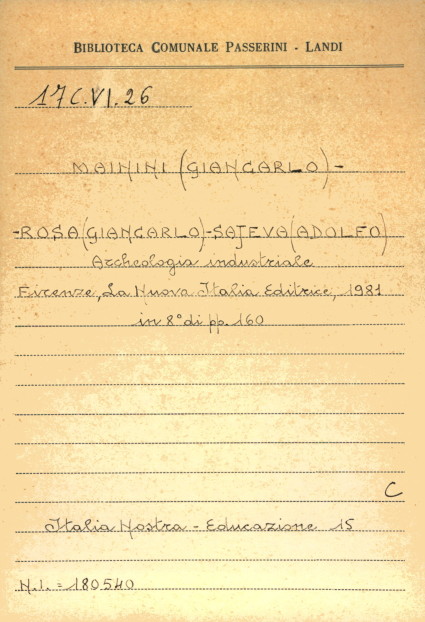 BIBLIOTECA COMUNALE PASSERINI - LANDI
17C.VI.26
MAININI (GIANCARLO) -
-ROSA (GIANCARLO)-SAJEVA (ADOLFO)
Archeologia industriale
Firenze, La Nuova Italia Editrice, 1981
in 8° di pp. 160
C
Italia Nostra - Educazione 15
N.I. = 180540